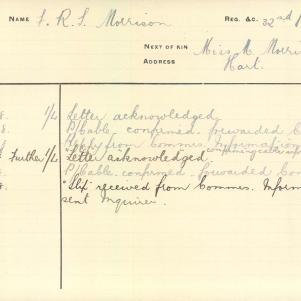 NAME J. R. S. Morrison REG. &C. 32nd
NEXT OF KIN Miss M. Morri
ADDRESS Hart.
8. 1/L Letter acknowledged
8. P/Cable. confirmed. forwarded C
Reply from Commrs. Information
Further 1/L Letter acknowledged.
8. P/Cable. confirmed. forwarded Com
8. "Slip" received from Commrs. Inform
sent Inquirer.